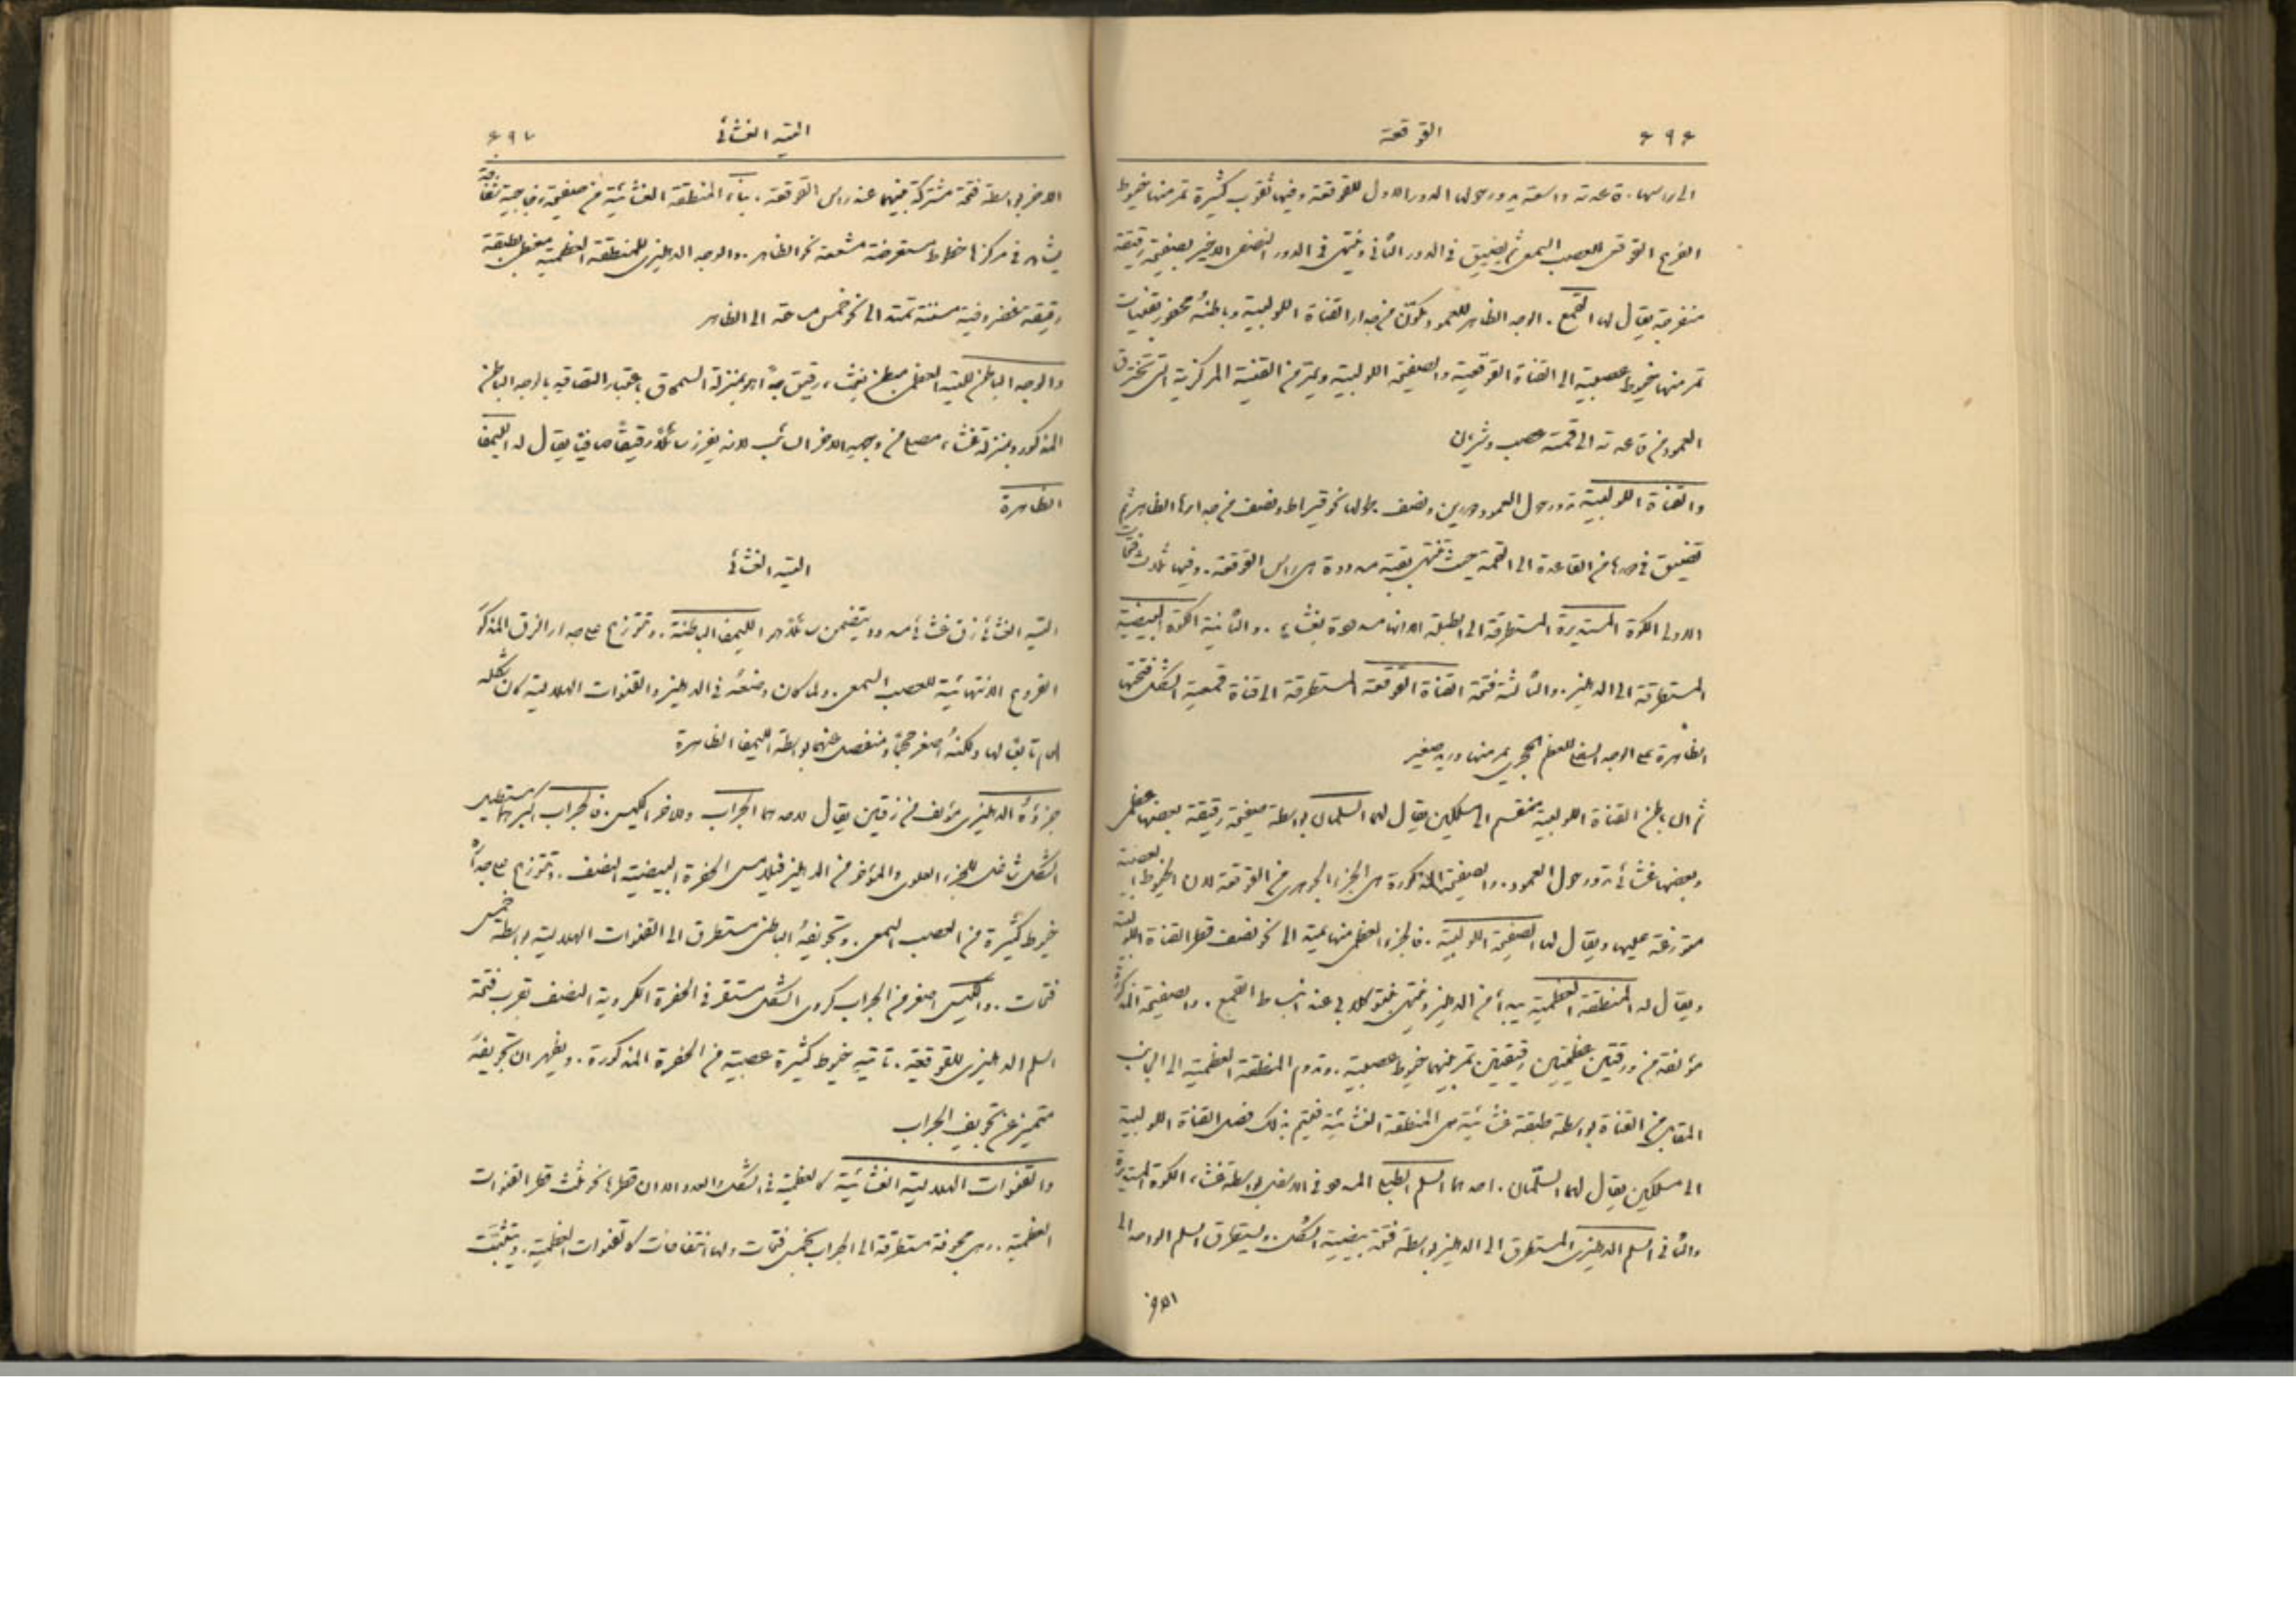 ٤٩٤
القوقعة
الى راسها. قاعدته واسعة يدور حولها الدور الاول للقوقعة وفيها ثقوب كثيرة تمر منها خيوط
الفرع القوقعى للعصب السمعى ثم يضيق فى الدور الثانى وينتهى فى الدور النصفى الاخير بصفيحة رقيقة
منفرجة يقال لها القمع. الوجه الظاهر للعمود يتكون من جدار القناة اللولبية وباطنهُ محفور بقنيات
تمر منها خيوط عصبية الى القناة القوقعية والصفيحة اللولبية ويمر من القنية المركزية التى تخترق
العمود من قاعدته الى قمته عصب وشريان
والقناة اللولبية تدور حول العمود دورين ونصف. طولها نحو قيراط ونصف من جدارها الظاهر ثم
تضيق فى مدها من القاعدة الى القمة حيث تنتهى بقبة مسدودة هى راس القوقعة. وفيها ثلاث فتحات
الاولى الكوة المستديرة المستطرقة الى الطبلة الا انها مسدودة بغشاء. والثانية الكوة البيضية
المستطرقة الى الدهليز. والثالثة فتحة القناة القوقعة المستطرقة الى قناة قمعية الشكل فتحتها
الظاهرة على الوجه السفلى للعظم الحجرى يمر منها وريد صغير
ثم ان باطن القناة اللولبية منقسم الى مسلكين يقال لهما السلمان بواسطة صفيحة رقيقة بعضها عظمى
وبعضها غشائى تدور حول العمود. والصفيحة المذكورة هى الجزء الجوهرى من القوقعة لان الخيوط العصبية
متوزعة عليها ويقال لها الصفيحة اللولبية. فالجزء العظمى منها يمتد الى نحو نصف قطر القناة اللولبية
ويقال له المنطقة العظمية يبدأ من الدهليز وينتهى بنتوٍ كلابى عند انبساط القمع. والصفيحة المذكورة
مؤلفة من ورقتين عظميتين رقيقتين تمر بينهما خيوط عصبية. وتدوم المنطقة العظمية الى الجانب
المقابل من القناة بواسطة طبقة غشائية هى المنطقة الغشائية فيتم بذلك فصل القناة اللولبية
الى مسلكين يقال لهما السلّمان. احدهما السلم الطبلى المسدود فى الاسفل بواسطة غشاء الكوة المستديرة
والثانى السلم الدهليزى المستطرق الى الدهليز بواسطة فتحة بيضية الشكل. ويستطرق السلم الواحد الى
الاخر
التيه الغشائى
٤٩٧
الاخر بواسطة فتحة مشتركة بينهما عند راس القوقعة. بناء المنطقة الغشائية من صفيحة زجاجية شفافة
يشاهد فى مركزها خطوط مستعرضة مشععة نحو الظاهر. والوجه الدهليزى للمنطقة العظمية مغطى بطبقة
رقيقة غضروفية مسننة تمتد الى نحو خمس مساحته الى الظاهر
والوجه الباطن للتيه العظمى مبطن بغشاء رقيق جدًا هو بمنزلة السمحاق باعتبار التصاقه بالوجه الباطن
المذكور وبمنزلة غشاء مصلى من وجهه الاخر السائب لانه يفرز سائلاً رقيقًا صافيًا يقال له الليمفا
الظاهرة
التيه الغشائى
التيه الغشائى زق غشائى مسدود يتضمن سائلاً هو الليمفا الباطنة. وتتوزع على جدار الزق المذكور
الفروع الانتهائية للعصب السمعى. ولما كان وضعهُ فى الدهليز والقنوات الهلالية كان شكله
العام تابعًا لها ولكنهُ اصغر حجمًا ومنفصل عنهما بواسطة الليمفا الظاهرة
جزؤهُ الدهليزى مؤلف من زقين يقال لاحدهما الجراب وللاخر الكييس. فالجراب اكبرهما مستطيل
الشكل شاغل للجزء العلوى والمؤخر من الدهليز فيلامس الحفرة البيضية النصف. وتتوزع على جداره
خيوط كثيرة من العصب السمعى. وتجويفهُ الباطن مستطرق الى القنوات الهلالية بواسطة خمس
فتحات. والكييس اصغر من الجراب كروى الشكل مستقر فى الحفرة الكروية النصف بقرب فتحة
السلم الدهليزى للقوقعة. تاتيه خيوط كثيرة عصبية من الحفرة المذكورة. ويظهر ان تجويفهُ
متميز عن تجويف الجراب
والقنوات الهلالية الغشائية كالعظمية فى الشكل والعدد الا ان قطرها نحو ثلث قطر القنوات
العظمية. وهى مجوفة مستطرقة الى الجراب بخمس فتحات ولها انتفاخات كالقنوات العظمية. ويتثبت